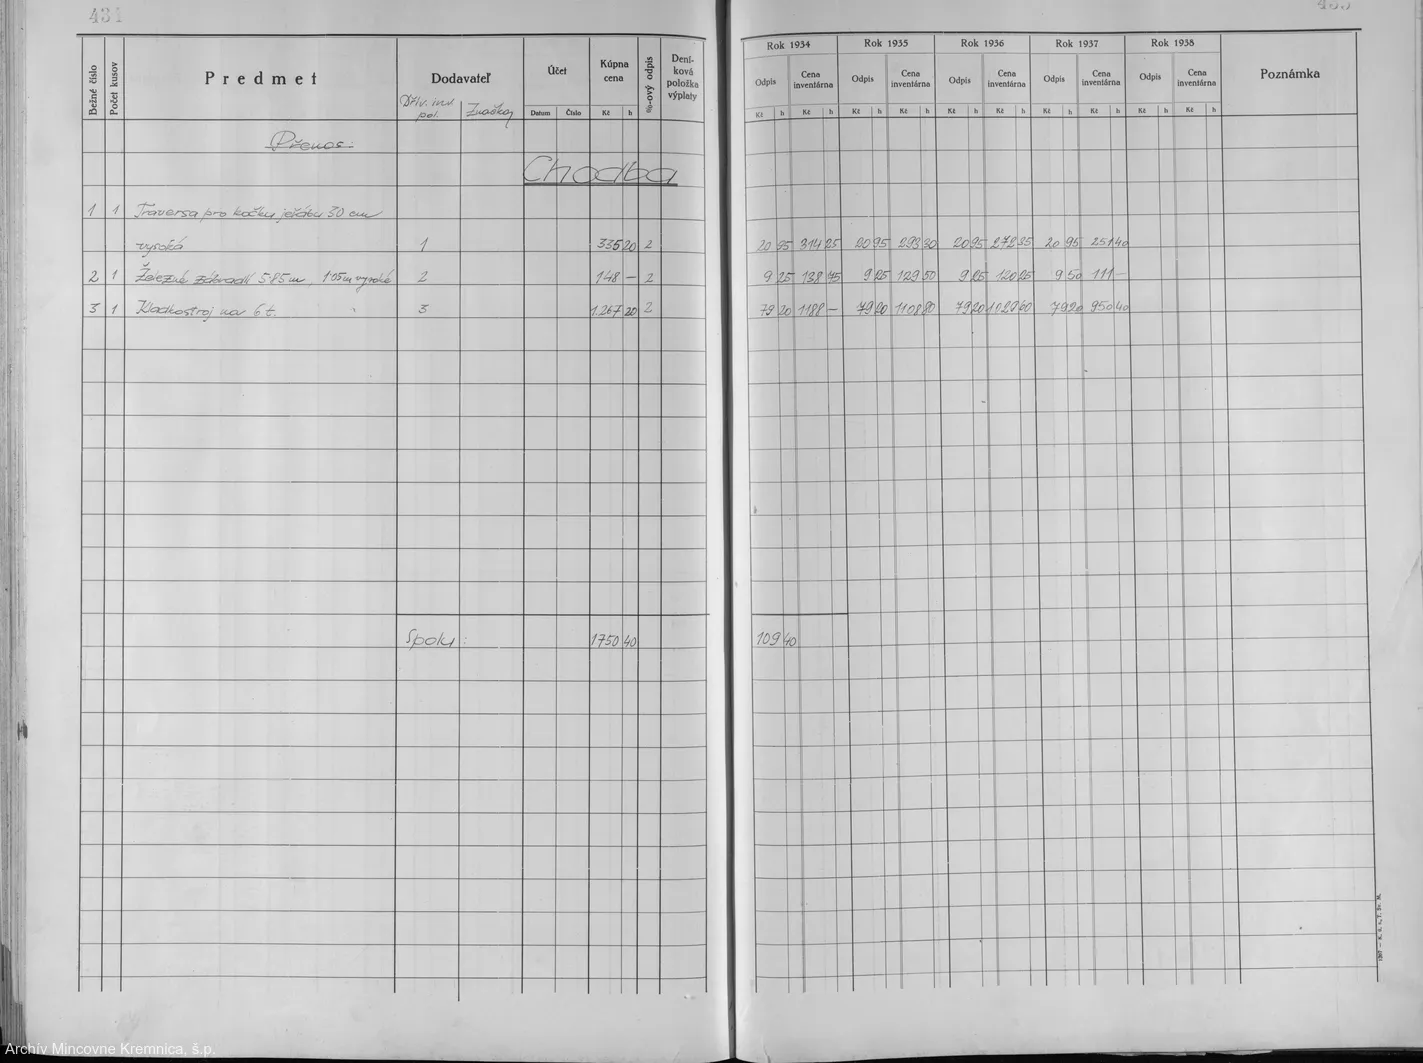 431
Bežné číslo Počet kusov Predmet Dodavateľ Účet Kúpna cena %-ový odpis Dení-ková položka výplaty Rok 1934 Rok 1935 Rok 1936 Rok 1937 Rok 1938 Poznámka
pol. Značka Datum Číslo Kč h
Odpis Cena inventárna Odpis Cena inventárna Odpis Cena inventárna Odpis Cena inventárna Odpis Cena inventárna
Kč h Kč h Kč h Kč h Kč h Kč h Kč h Kč h Kč h Kč h
Přenos:
Chodba
1 1 Traversa pro kočku jeřábu 30 cm
vysoká 1 335 20 2 20 95 314 25 20 95 293 30 20 95 272 35 20 95 251 40
2 1 Železné zábradlí 5·85 m, 1·05 m vysoké 2 148 — 2 9 25 138 75 9 25 129 50 9 25 120 25 9 50 111 —
3 1 Kladkostroj na 6 t. 3 1.267 20 2 79 20 1188 — 79 20 1108 80 79 20 1029 60 79 20 950 40
Spolu: 1750 40 109 40
Archív Mincovne Kremnica, š.p.